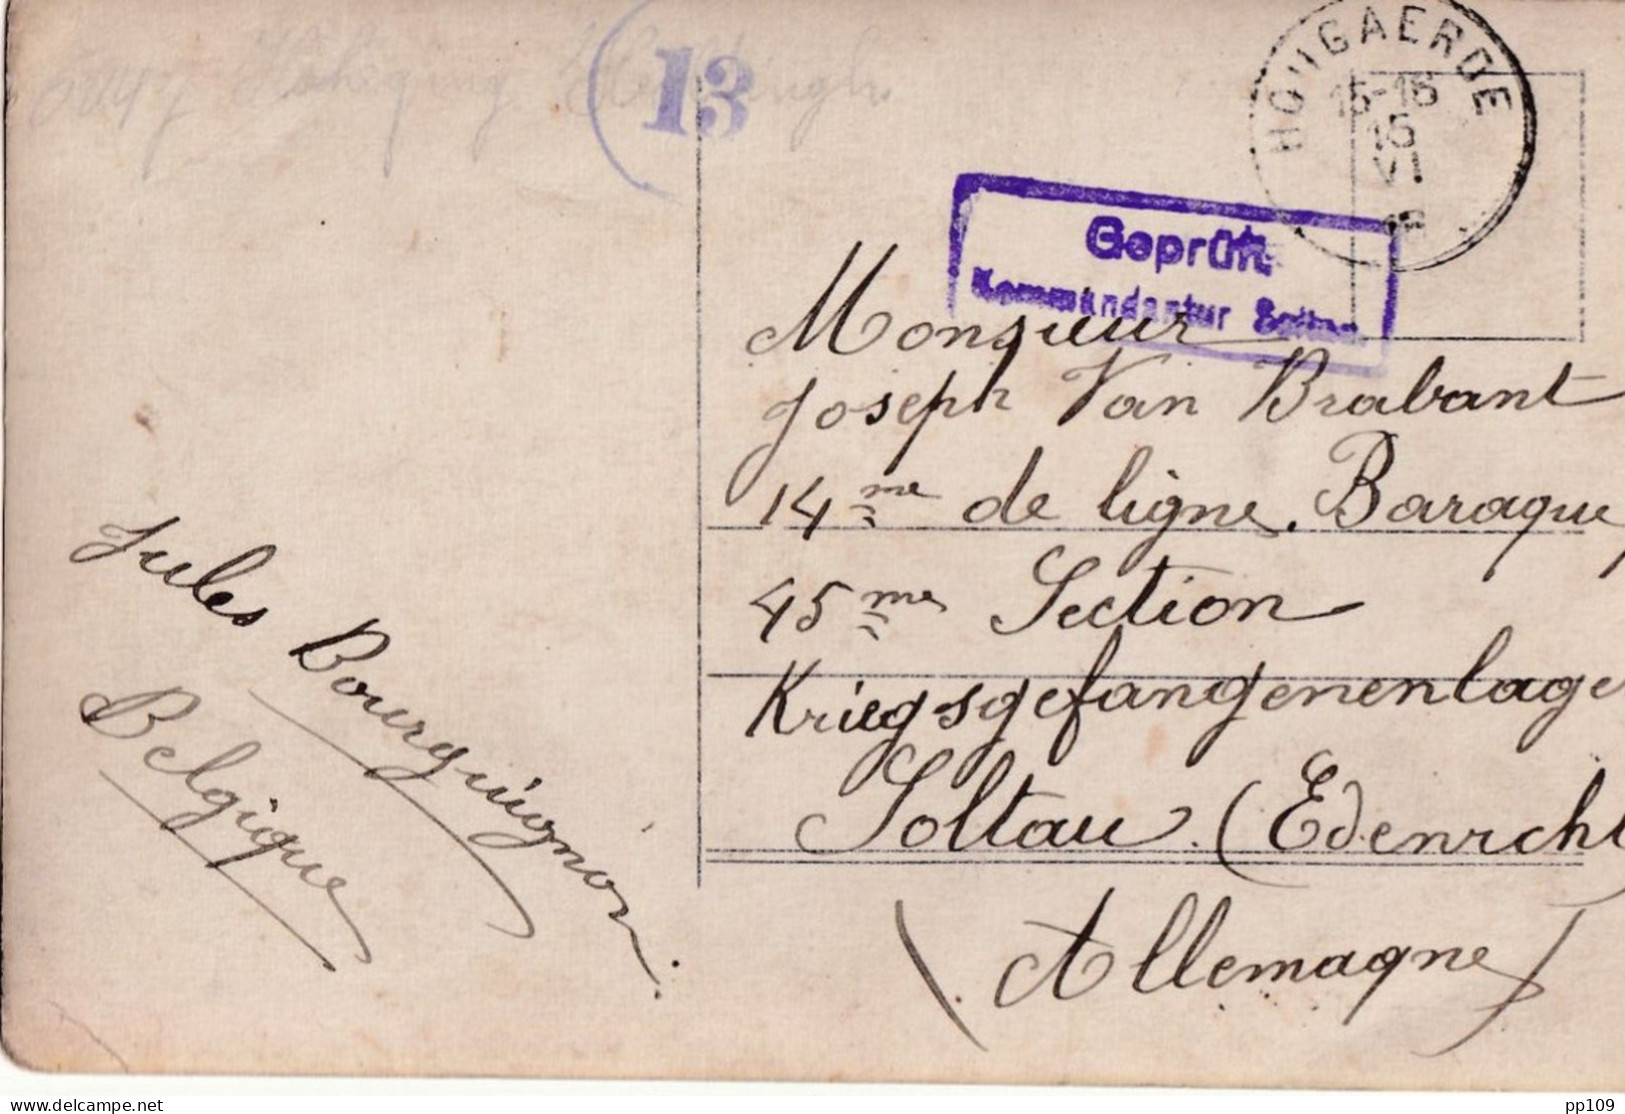 13
HOUGAERDE
15-16
15
VI
Geprüft
Kommandantur Soltau
Monsieur
Joseph Van Brabant
14me de ligne. Baraque
45me Section
Kriegsgefangenenlage
Soltau. (Edenricht
(Allemagne)
Jules Bourguignon.
Belgique
pp109